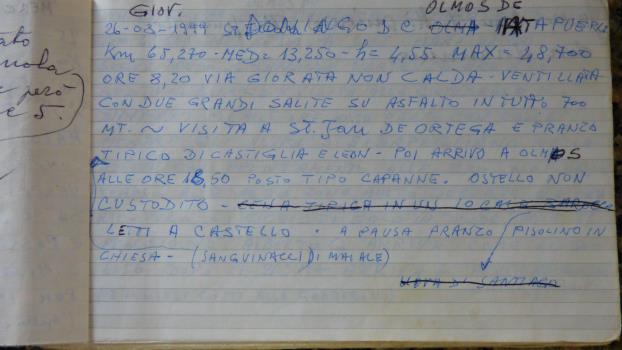 GIOV. OLMOS DE
26-08-1999 St. DOMINGO D C OLMA - ATAPUERCA
KM 65,270 - MED = 13,250 - h = 4,55. MAX = 48,700
ORE 8,20 VIA GIORNATA NON CALDA - VENTILLATA
CON DUE GRANDI SALITE SU ASFALTO IN TUTTO 700
MT. ~ VISITA A St. Jou DE ORTEGA E PRANZO
TIPICO DI CASTIGLIA E LEON - POI ARRIVO A OLMOS
ALLE ORE 18,50 POSTO TIPO CAPANNE. OSTELLO NON
CUSTODITO - CENA TIPICA IN UN LOCALE
LETTI A CASTELLO. A PAUSA PRANZO PISOLINO IN
CHIESA - (SANGUINACCI DI MAIALE)
META DI SANTIAGO
ato
però
e 5.